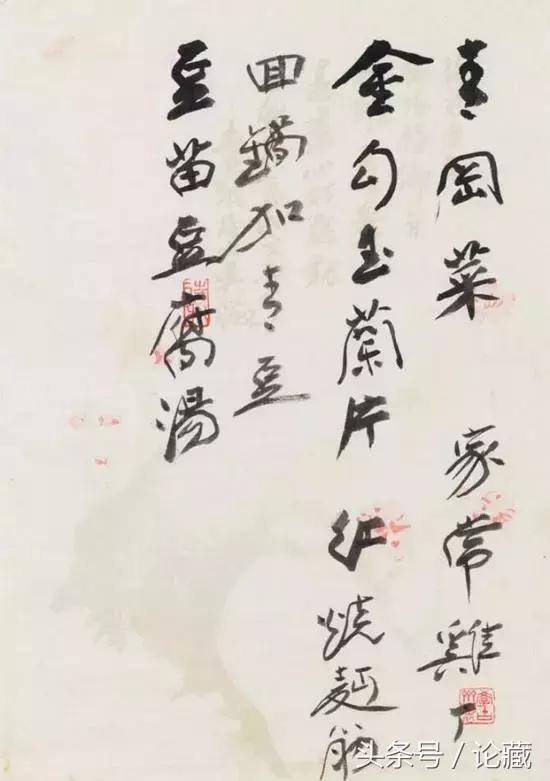 青岡菜 家常雞丁
金勾玉蘭片 紅燒麵筋
回鍋加青豆
豆苗豆腐湯
头条号 / 论藏